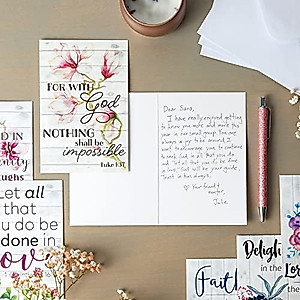 FOR WITH
God
NOTHING
shall be
impossible
Luke 1:37
Dear Sara,
I have really enjoyed getting
to know you more and more this
year in our small group. You are
always a joy to be around. I
want to encourage you to continue
to seek God in all that you do
and "let all that you do be done
in love". God will be your guide.
Trust in Him always.
♡ Your friend &
mentor,
Julie
D IN
laughs
Let all
that
you do be
done in
love
Faith
Delight
in the Lord